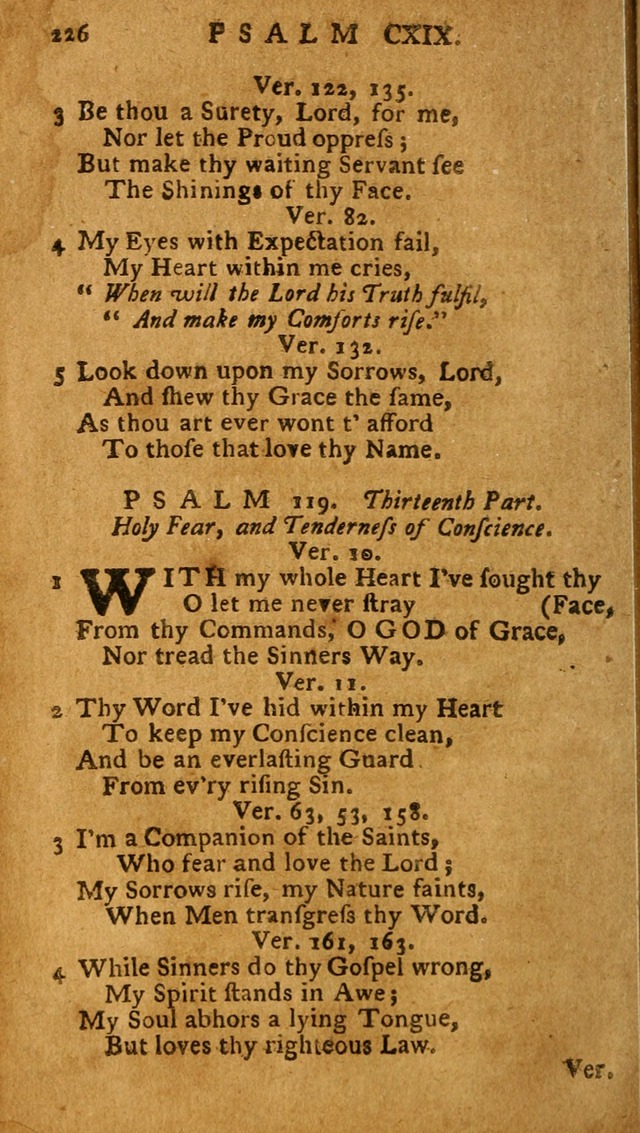 226 PSALM CXIX.
Ver. 122, 135.
3 Be thou a Surety, Lord, for me,
Nor let the Proud oppreſs;
But make thy waiting Servant ſee
The Shinings of thy Face.
Ver. 82.
4 My Eyes with Expectation fail,
My Heart within me cries,
“ When will the Lord his Truth fulfil,
“ And make my Comforts riſe.”
Ver. 132.
5 Look down upon my Sorrows, Lord,
And ſhew thy Grace the ſame,
As thou art ever wont t' afford
To thoſe that love thy Name.
PSALM 119. Thirteenth Part.
Holy Fear, and Tenderneſs of Conſcience.
Ver. 10.
1 WITH my whole Heart I've ſought thy
O let me never ſtray (Face,
From thy Commands, O GOD of Grace,
Nor tread the Sinners Way.
Ver. 11.
2 Thy Word I've hid within my Heart
To keep my Conſcience clean,
And be an everlaſting Guard
From ev'ry riſing Sin.
Ver. 63, 53, 158.
3 I'm a Companion of the Saints,
Who fear and love the Lord;
My Sorrows riſe, my Nature faints,
When Men tranſgreſs thy Word.
Ver. 161, 163.
4 While Sinners do thy Goſpel wrong,
My Spirit ſtands in Awe;
My Soul abhors a lying Tongue,
But loves thy righteous Law.
Ver.